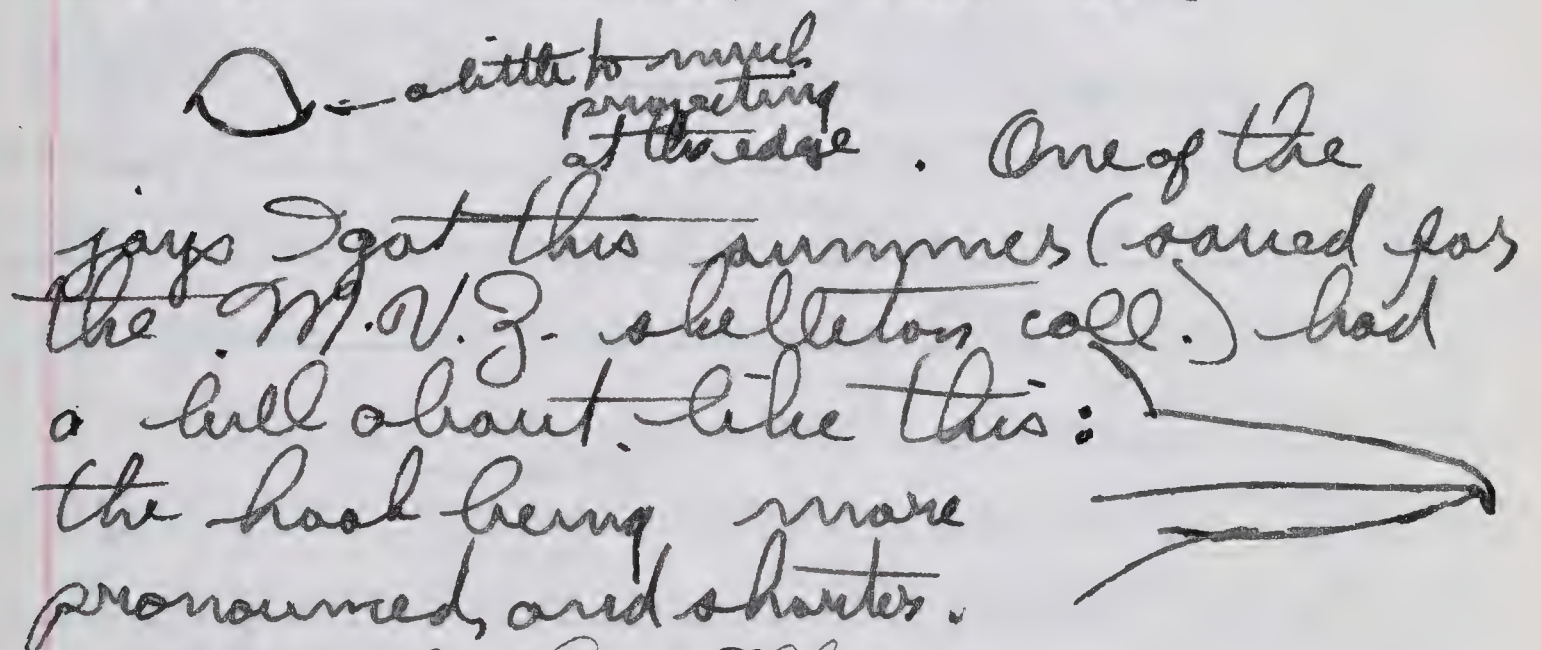 a little to much
projecting
at the edge. One of the
jays I got this summer (saved for
the M.V.Z. skelleton coll.) had
a bill about like this:
the hook being more
pronounced, and shorter.